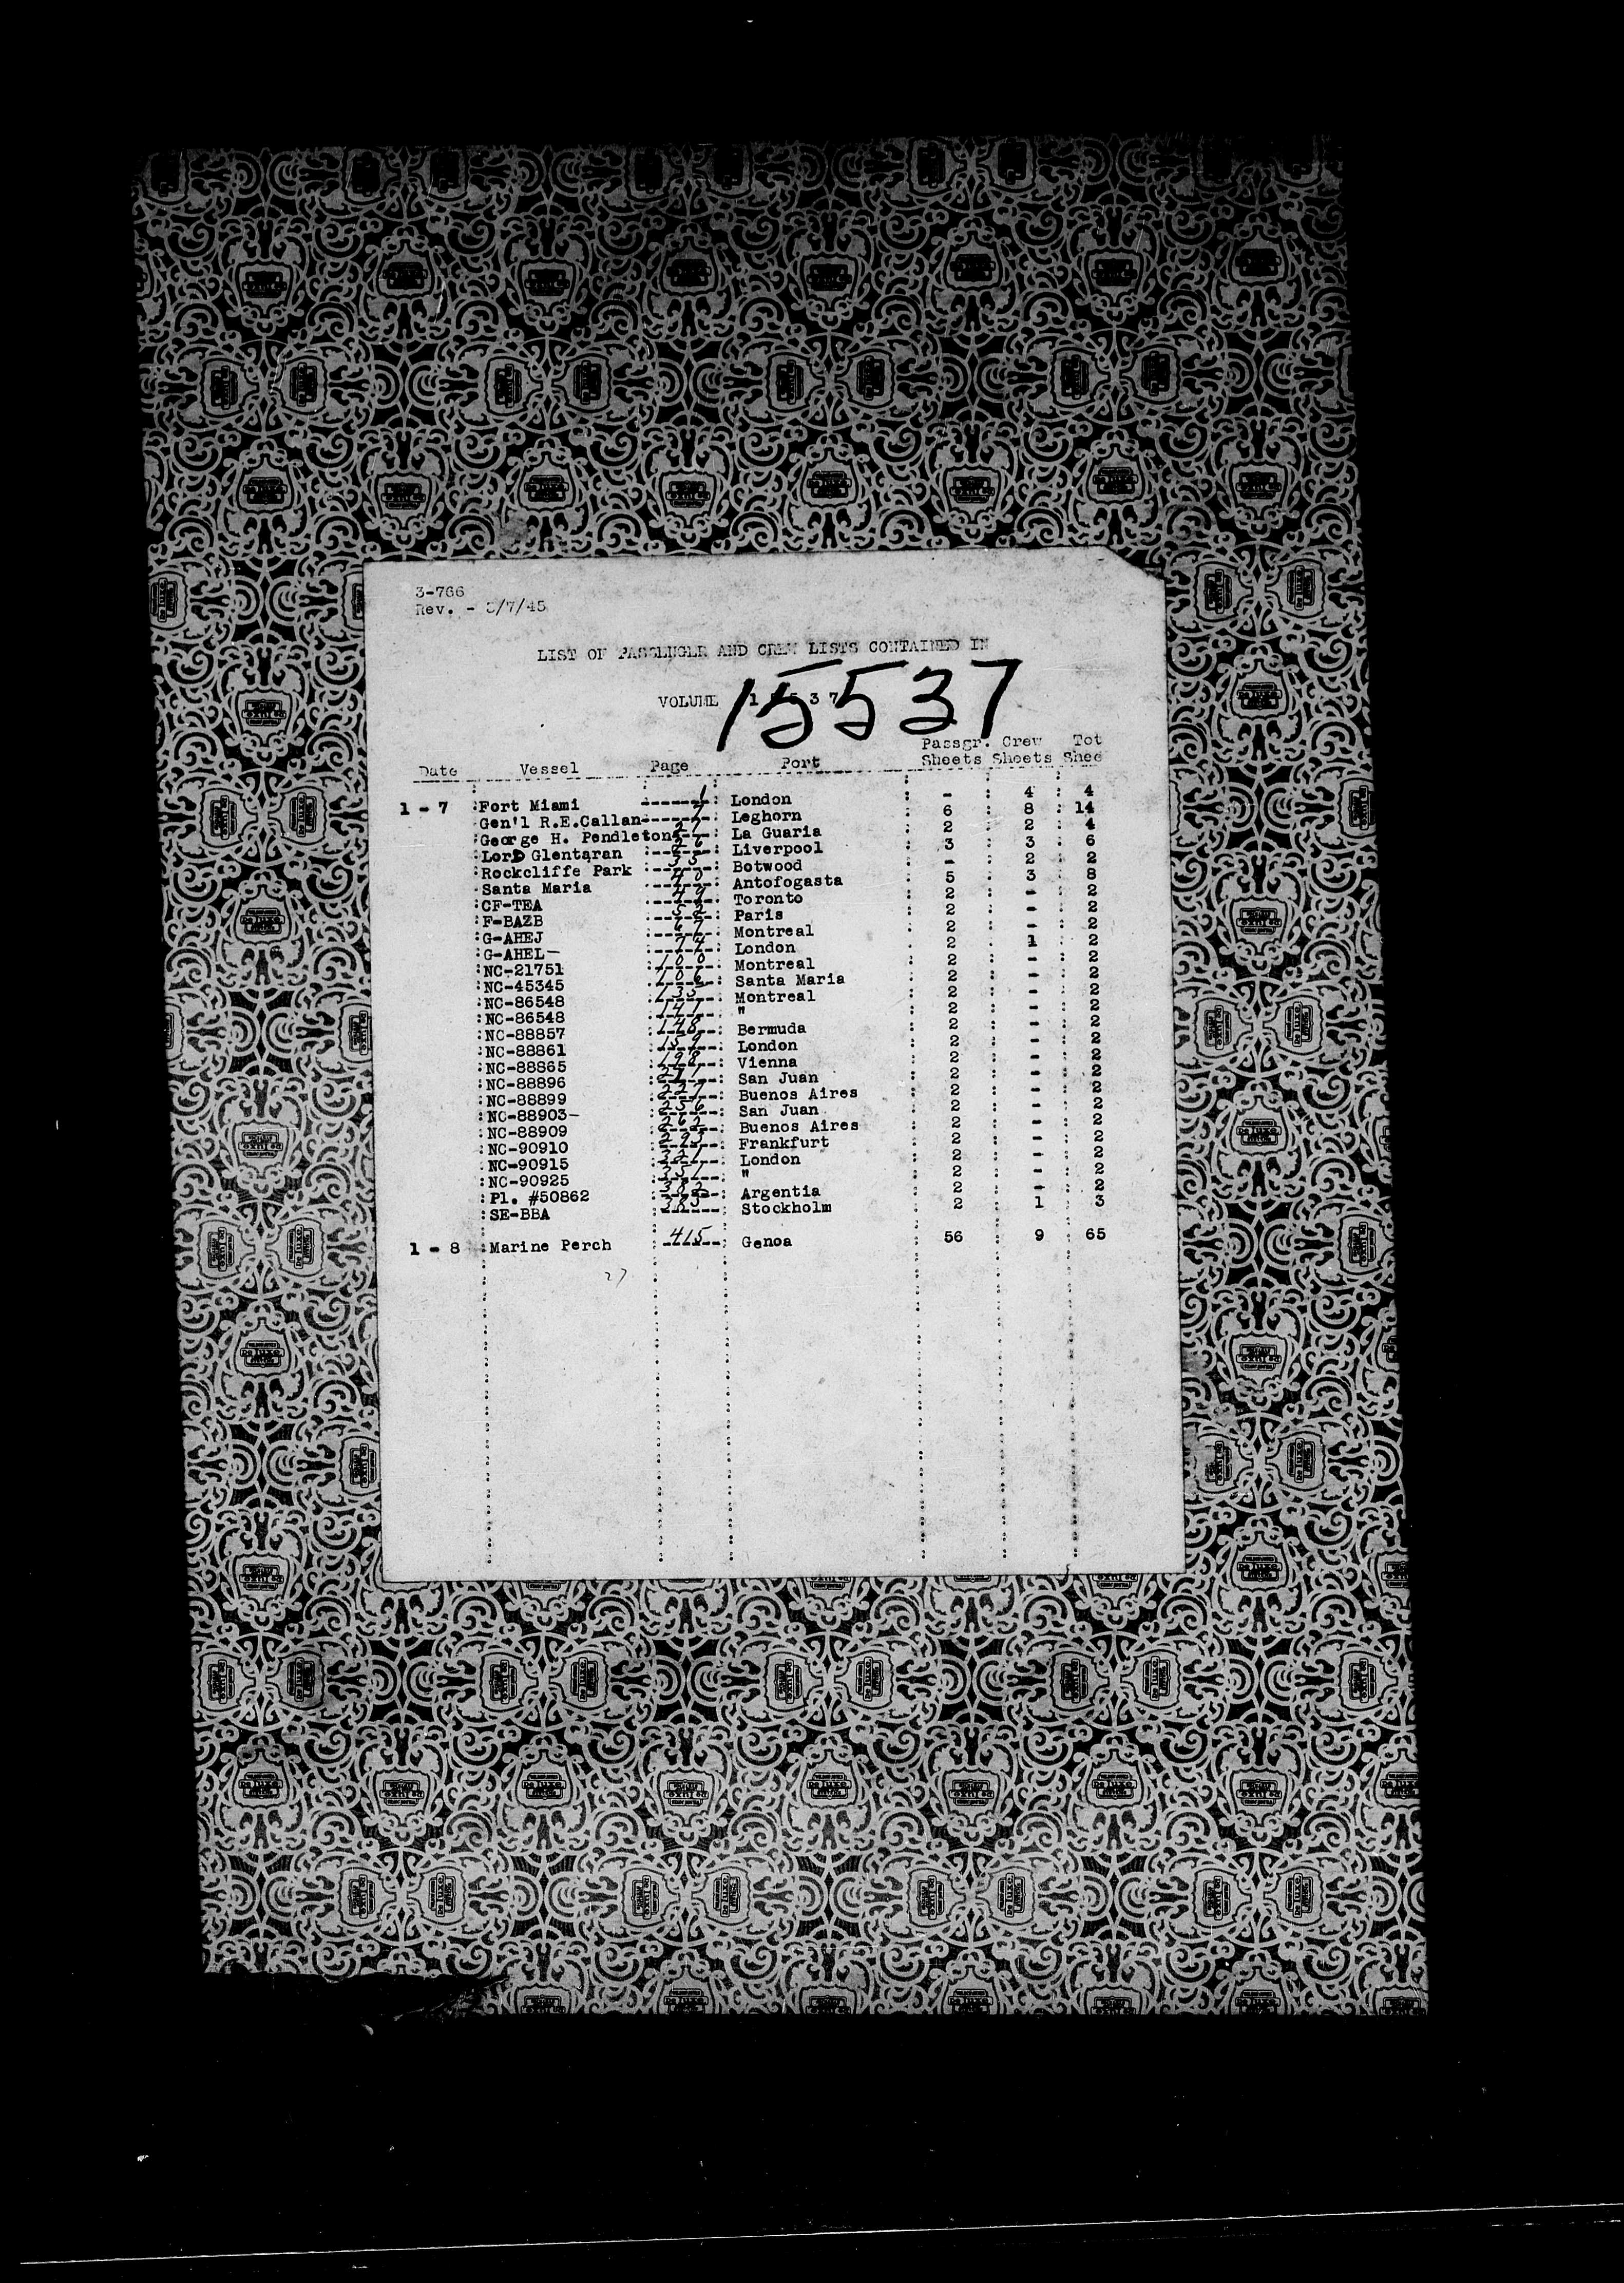 3-766
Rev. - 5/7/45
LIST OF PASSENGER AND CREW LISTS CONTAINED IN
VOLUME 15537
15537
Date Vessel Page Port Passgr. Sheets Crew Sheets Tot Shee
1 - 7 :Fort Miami 1 : London : - : 4 : 4
:Gen'l R.E.Callan 7 : Leghorn : 6 : 8 : 14
:George H. Pendleton 21 : La Guaria : 2 : 2 : 4
:Lord Glentaran : 26 : Liverpool : 3 : 3 : 6
:Rockcliffe Park : 35 : Botwood : - : 2 : 2
:Santa Maria : 40 : Antofogasta : 5 : 3 : 8
:CF-TEA : 49 : Toronto : 2 : - : 2
:F-BAZB : 52 : Paris : 2 : - : 2
:G-AHEJ : 67 : Montreal : 2 : - : 2
:G-AHEL- : 74 : London : 2 : 1 : 2
:NC-21751 : 100 : Montreal : 2 : - : 2
:NC-45345 : 106 : Santa Maria : 2 : - : 2
:NC-86548 : 135 : Montreal : 2 : - : 2
:NC-86548 : 141 : " : 2 : - : 2
:NC-88857 : 148 : Bermuda : 2 : - : 2
:NC-88861 : 159 : London : 2 : - : 2
:NC-88865 : 198 : Vienna : 2 : - : 2
:NC-88896 : 211 : San Juan : 2 : - : 2
:NC-88899 : 227 : Buenos Aires : 2 : - : 2
:NC-88903- : 256 : San Juan : 2 : - : 2
:NC-88909 : 262 : Buenos Aires : 2 : - : 2
:NC-90910 : 295 : Frankfurt : 2 : - : 2
:NC-90915 : 321 : London : 2 : - : 2
:NC-90925 : 351 : " : 2 : - : 2
:Pl. #50862 : 382 : Argentia : 2 : - : 2
:SE-BBA : 385 : Stockholm : 2 : 1 : 3
1 - 8 :Marine Perch : 415 : Genoa : 56 : 9 : 65
27
De luxe